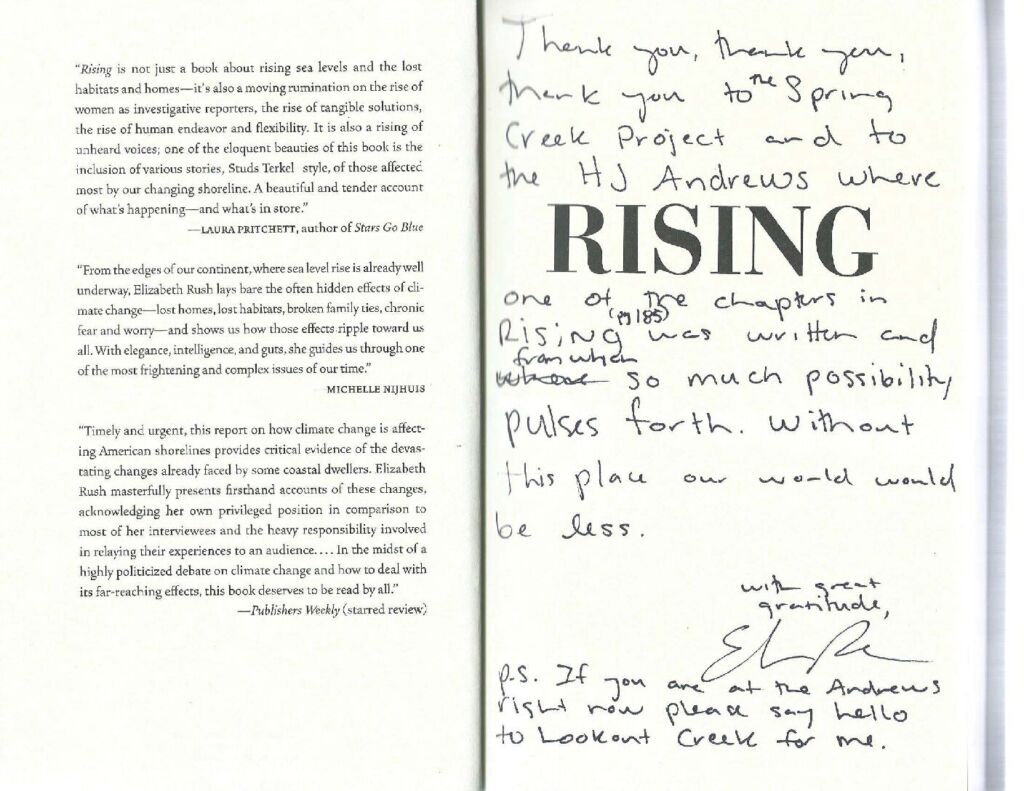 “Rising is not just a book about rising sea levels and the lost
habitats and homes—it’s also a moving rumination on the rise of
women as investigative reporters, the rise of tangible solutions,
the rise of human endeavor and flexibility. It is also a rising of
unheard voices; one of the eloquent beauties of this book is the
inclusion of various stories, Studs Terkel style, of those affected
most by our changing shoreline. A beautiful and tender account
of what’s happening—and what’s in store.”
—LAURA PRITCHETT, author of Stars Go Blue
“From the edges of our continent, where sea level rise is already well
underway, Elizabeth Rush lays bare the often hidden effects of cli-
mate change—lost homes, lost habitats, broken family ties, chronic
fear and worry—and shows us how those effects ripple toward us
all. With elegance, intelligence, and guts, she guides us through one
of the most frightening and complex issues of our time.”
MICHELLE NIJHUIS
“Timely and urgent, this report on how climate change is affect-
ing American shorelines provides critical evidence of the devas-
tating changes already faced by some coastal dwellers. Elizabeth
Rush masterfully presents firsthand accounts of these changes,
acknowledging her own privileged position in comparison to
most of her interviewees and the heavy responsibility involved
in relaying their experiences to an audience.... In the midst of a
highly politicized debate on climate change and how to deal with
its far-reaching effects, this book deserves to be read by all.”
—Publishers Weekly (starred review)
Thank you, thank you,
thank you to the Spring
Creek Project and to
the HJ Andrews where
RISING
one of the chapters in
(pg 185)
Rising was written and
from when
where so much possibility
pulses forth. Without
this place our world would
be less.
with great
gratitude,
p.s. If you are at the Andrews
right now please say hello
to Lookout Creek for me.